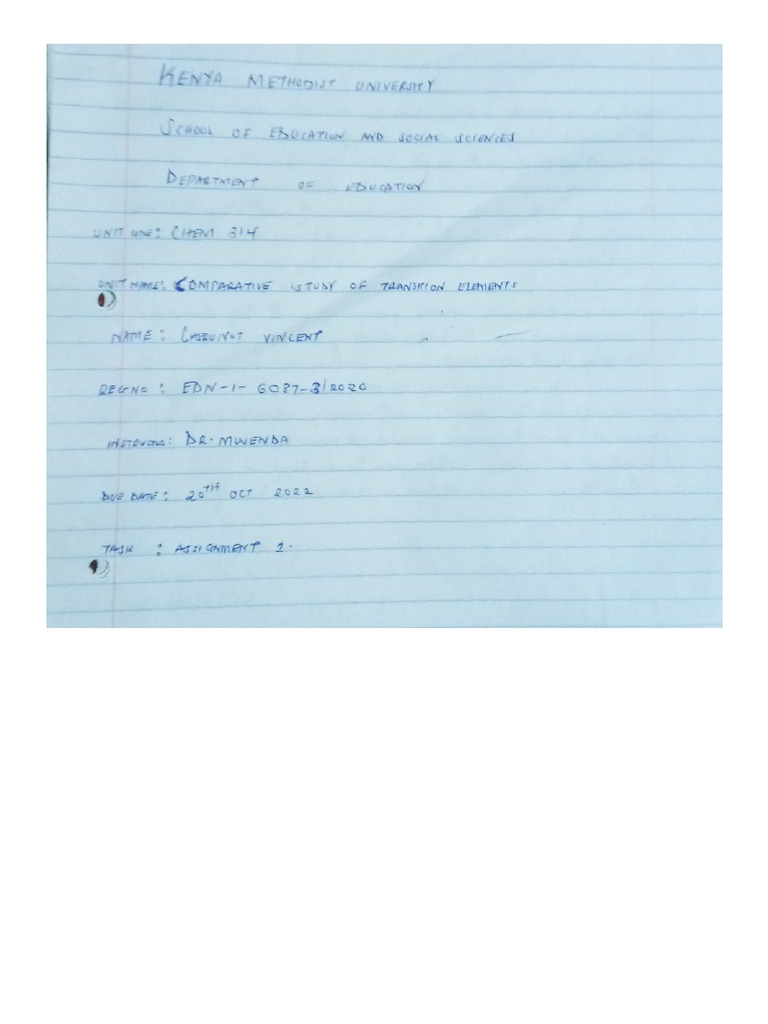 KENYA METHODIST UNIVERSITY
SCHOOL OF EDUCATION AND SOCIAL SCIENCES
DEPARTMENT OF EDUCATION
UNIT CODE: CHEM 314
UNIT NAME: COMPARATIVE STUDY OF TRANSITION ELEMENTS
NAME: CHERUIYOT VINCENT
REG NO: EDN-1-6087-3/2020
INSTRUCTOR: DR. MWENDA
DUE DATE: 20TH OCT 2022
TASK : ASSIGNMENT 2.